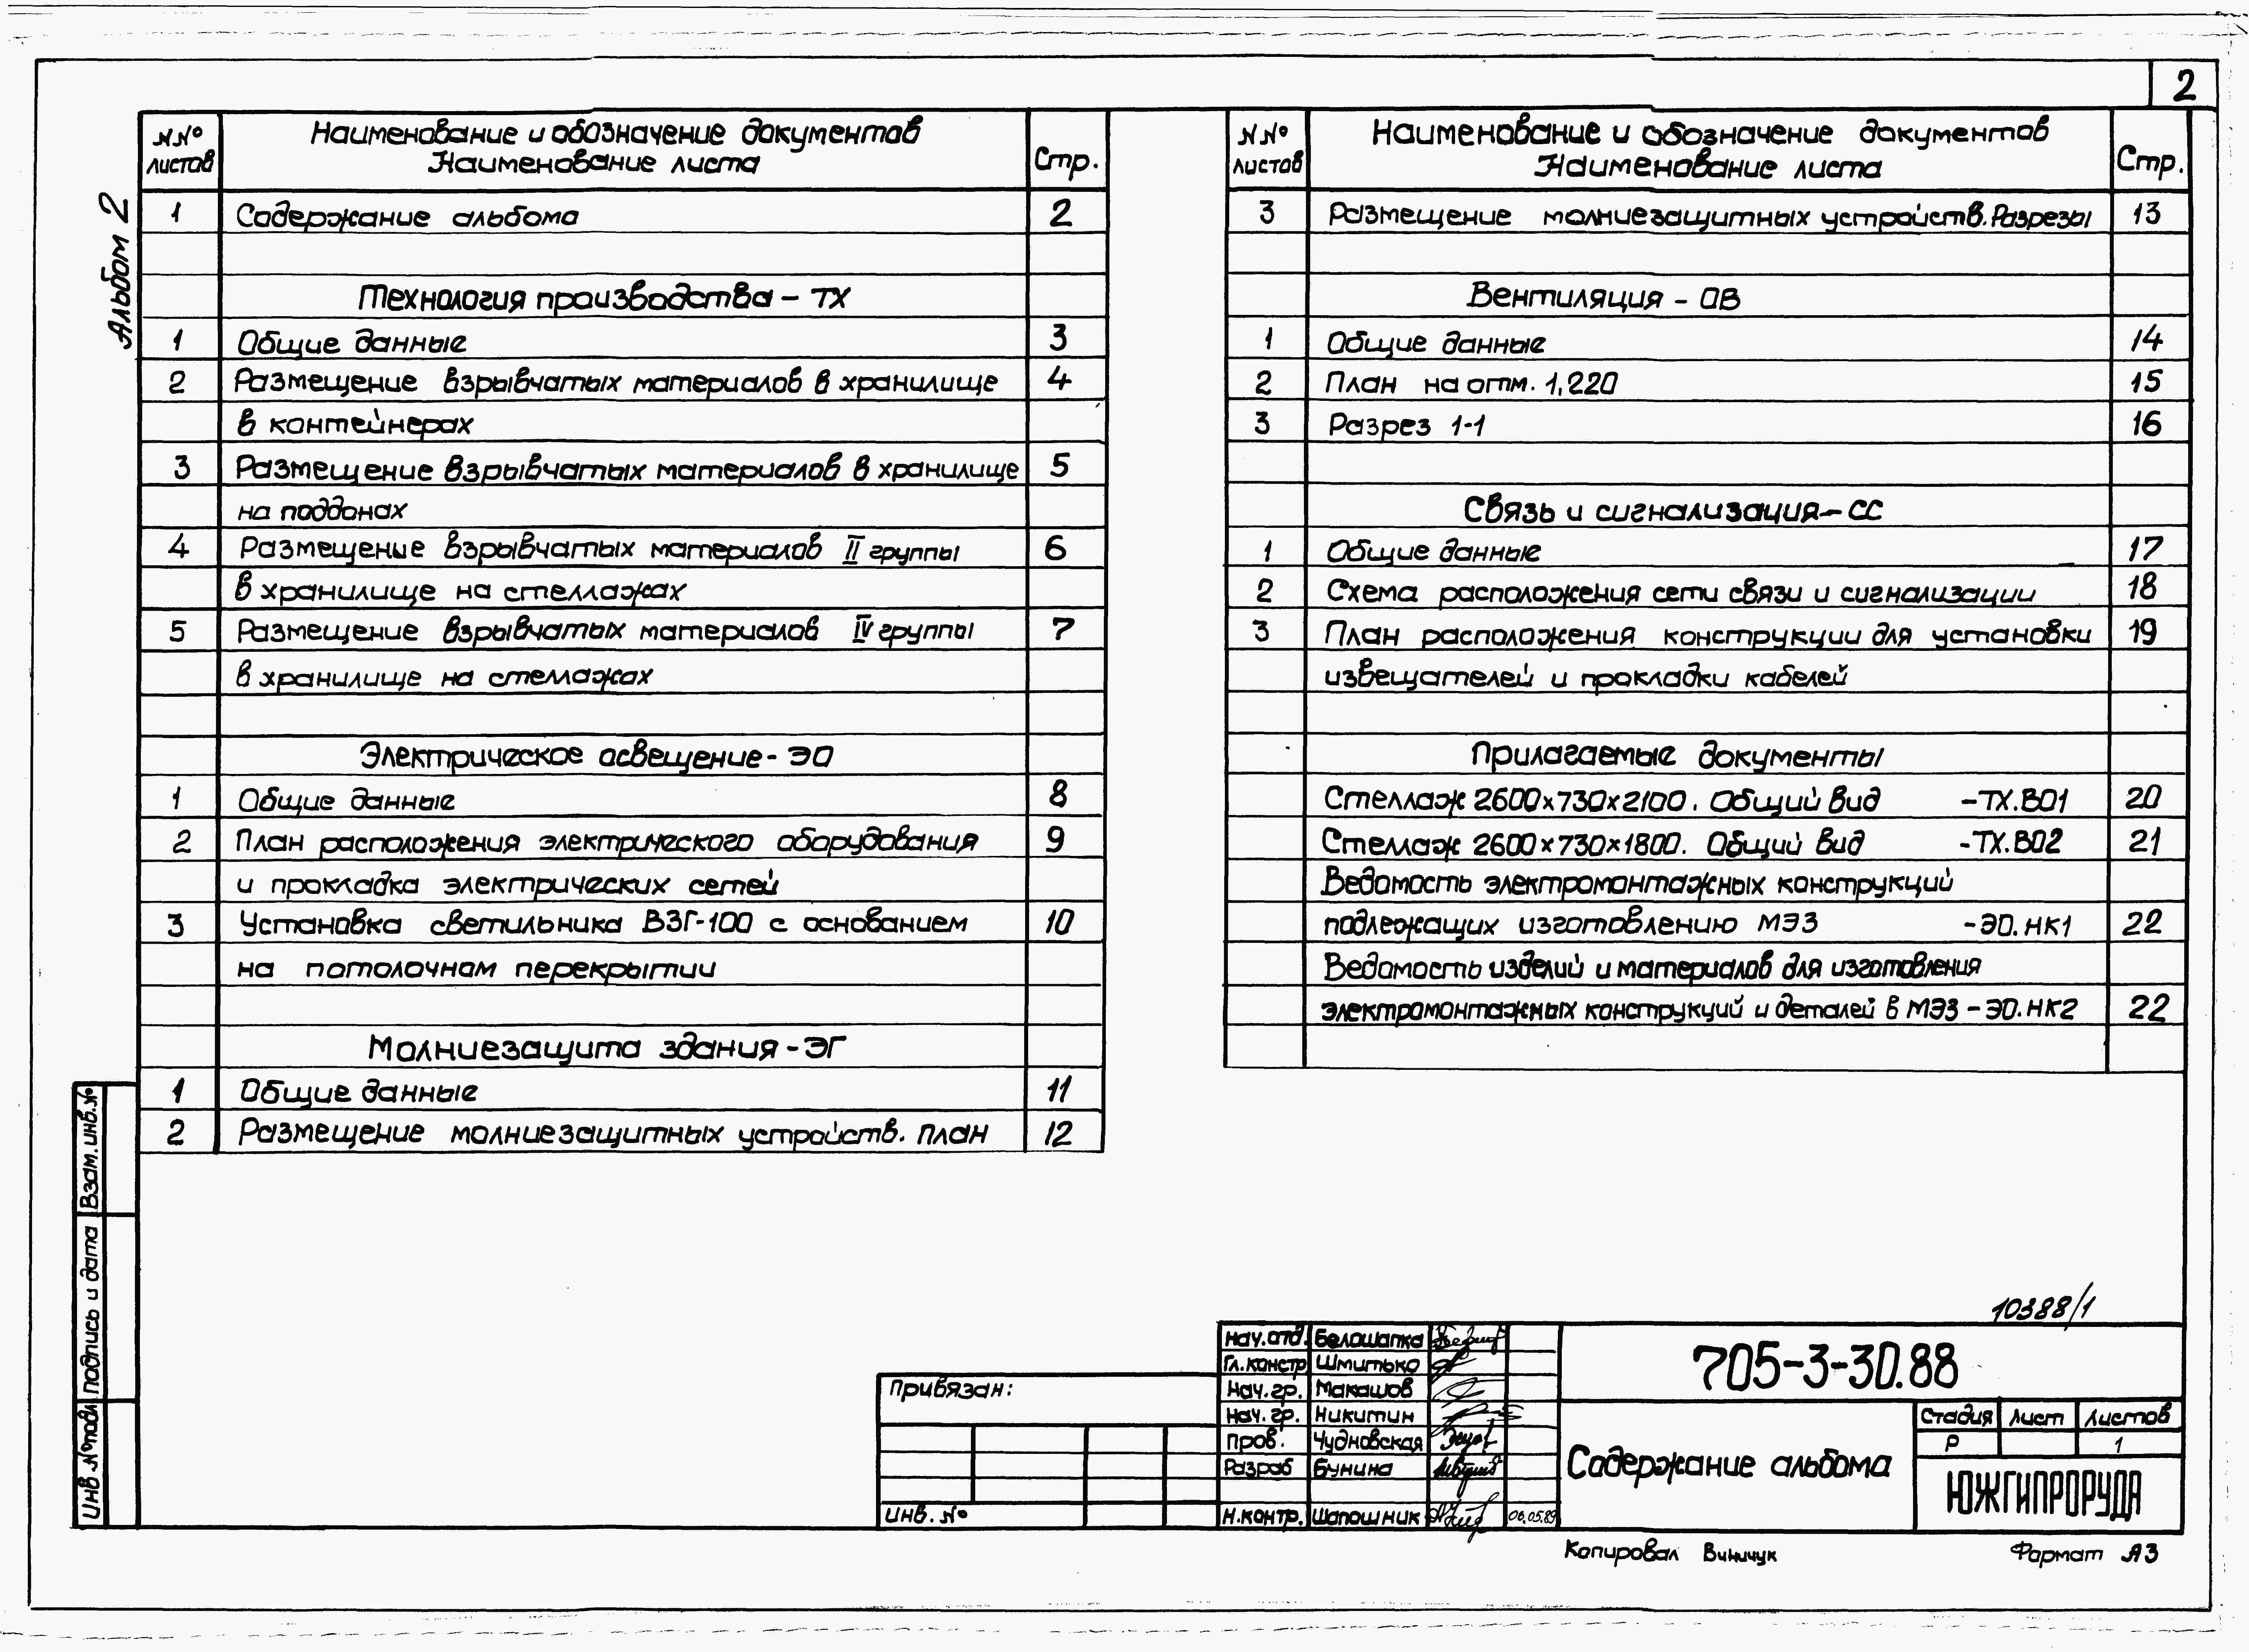 2
Альбом 2
N.Nº листов Наименование и обозначение документов Наименование листа Стр.
1 Содержание альбома 2
Технология производства - ТХ
1 Общие данные 3
2 Размещение взрывчатых материалов в хранилище 4
в контейнерах
3 Размещение взрывчатых материалов в хранилище 5
на поддонах
4 Размещение взрывчатых материалов II группы 6
в хранилище на стеллажах
5 Размещение взрывчатых материалов IV группы 7
в хранилище на стеллажах
Электрическое освещение - ЭО
1 Общие данные 8
2 План расположения электрического оборудования 9
и прокладка электрических сетей
3 Установка светильника ВЗГ-100 с основанием 10
на потолочном перекрытии
Молниезащита здания - ЭГ
1 Общие данные 11
2 Размещение молниезащитных устройств. План 12
N.Nº листов Наименование и обозначение документов Наименование листа Стр.
3 Размещение молниезащитных устройств. Разрезы 13
Вентиляция - ОВ
1 Общие данные 14
2 План на отм. 1,220 15
3 Разрез 1-1 16
Связь и сигнализация - СС
1 Общие данные 17
2 Схема расположения сети связи и сигнализации 18
3 План расположения конструкции для установки 19
извещателей и прокладки кабелей
Прилагаемые документы
Стеллаж 2600х730х2100. Общий вид -ТХ.ВО1 20
Стеллаж 2600х730х1800. Общий вид -ТХ.ВО2 21
Ведомость электромонтажных конструкций
подлежащих изготовлению МЭЗ -ЭО.НК1 22
Ведомость изделий и материалов для изготовления
электромонтажных конструкций и деталей в МЭЗ - ЭО.НК2 22
Взам.инв.№
Подпись и дата
Инв №подл
10388/1
Привязан:
Инв. №
Нач.отд. Белошапка
Гл.констр Шмитько
Нач.гр. Макашов
Нач.гр. Никитин
Пров. Чудновская
Разраб Бунина
Н.контр. Шапошник 06.05.89
705-3-30.88
Содержание альбома
Стадия Лист Листов
Р 1
ЮЖГИПРОРУДА
Копировал Виничук
Формат А3